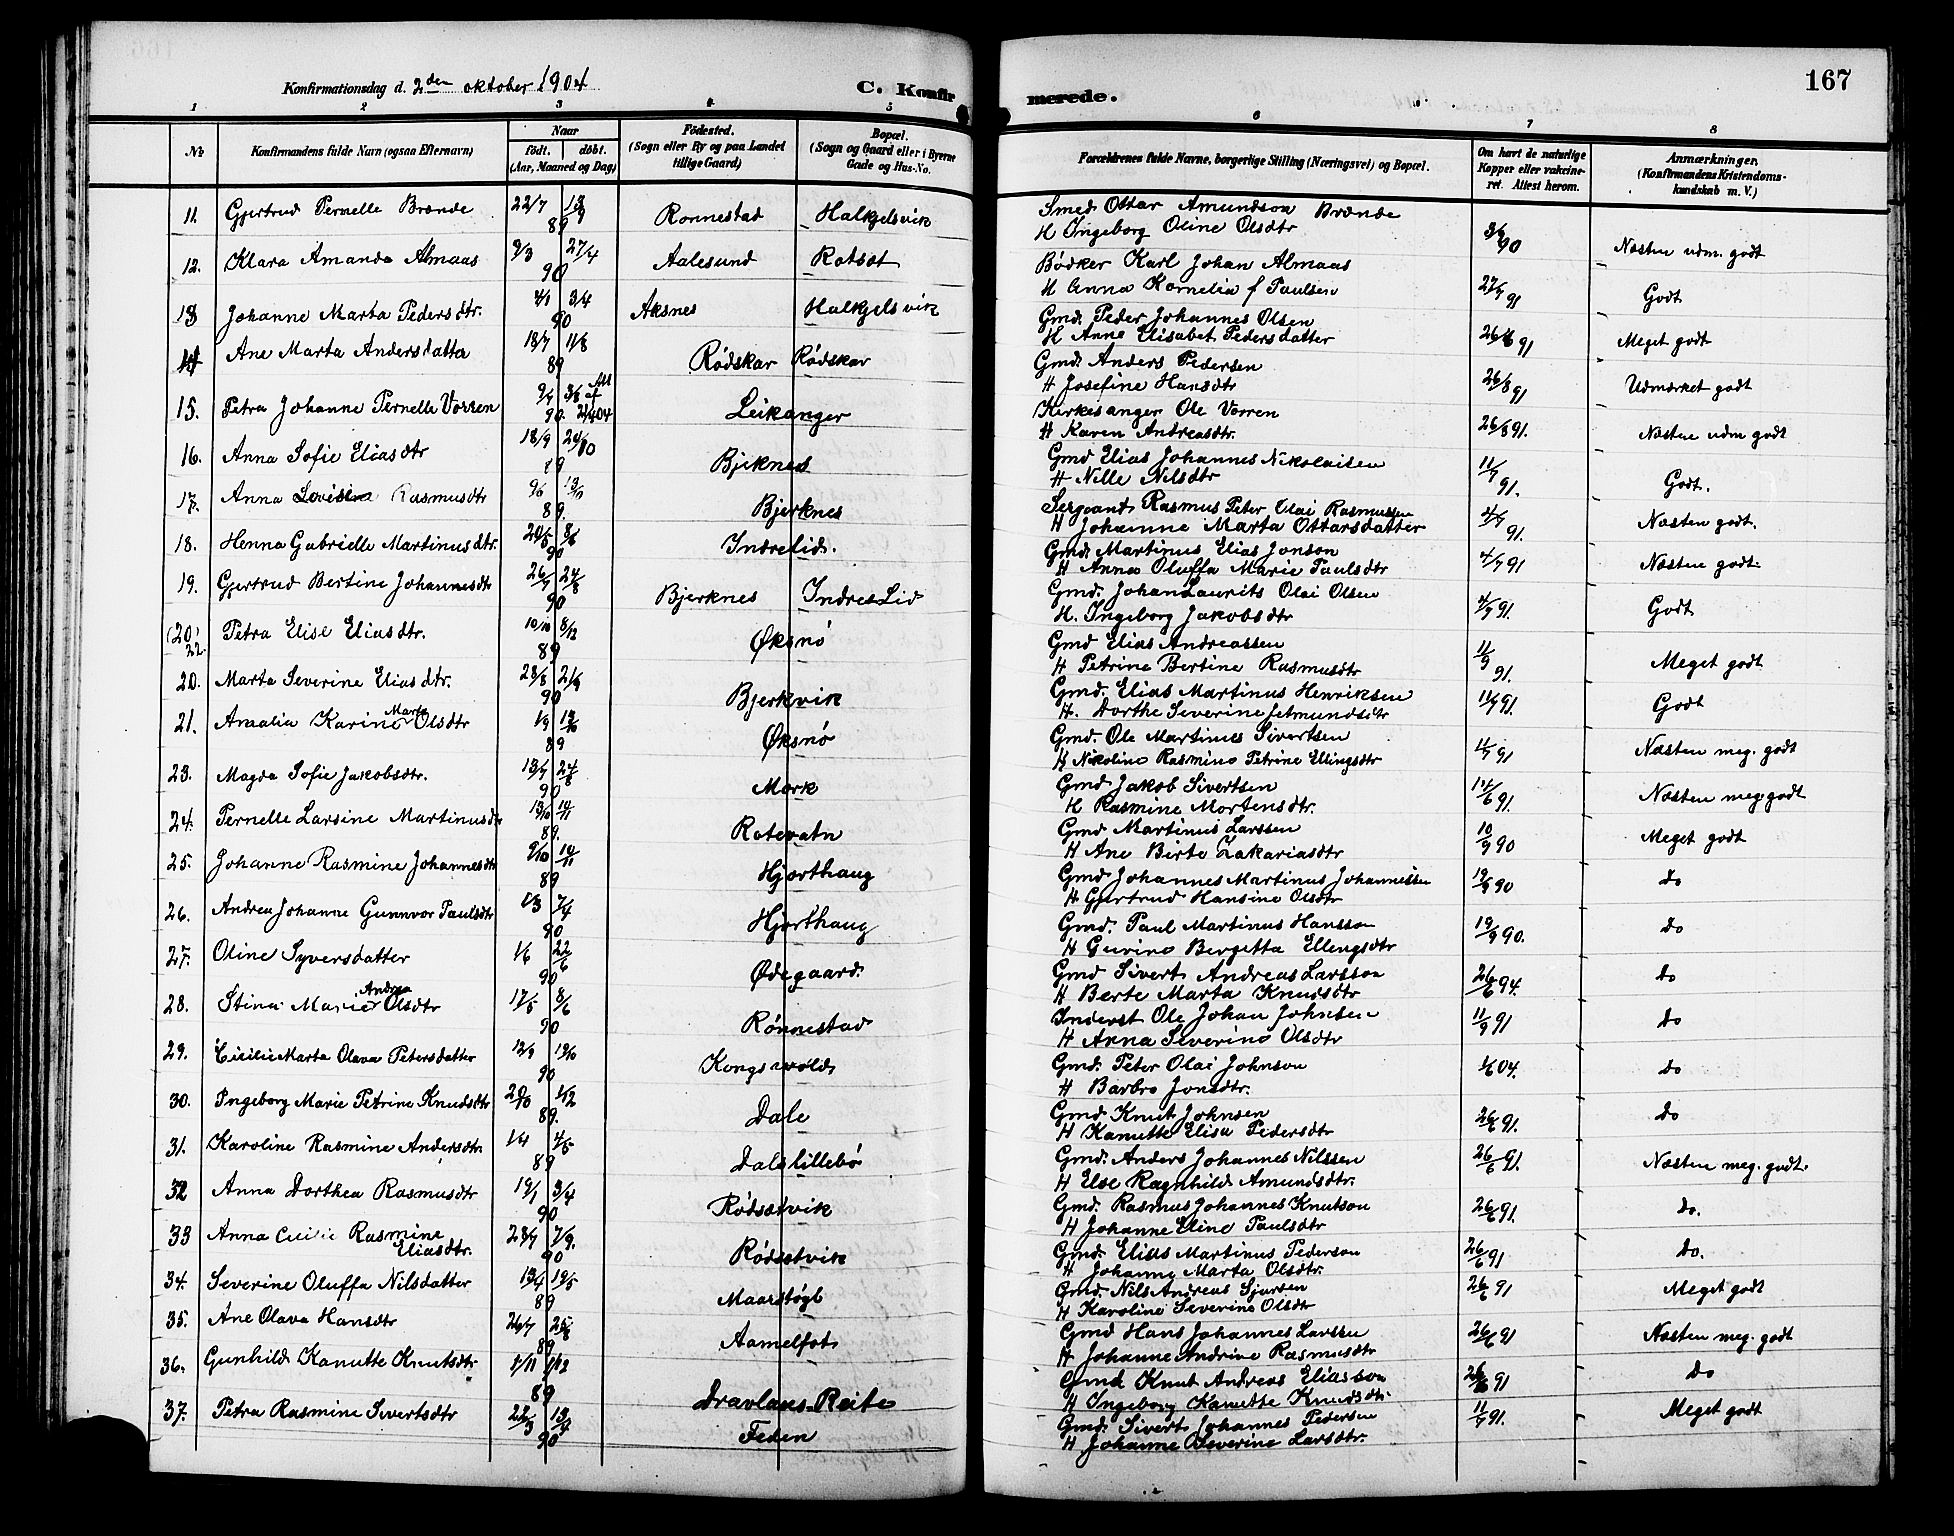 Konfirmationsdag d. 2den oktober 1904
C. Konfir
merede.
167
1 2 3 4 5 6 7 8
Nr
Konfirmandens fulde Navn (ogsaa Efternavn)
Naar
födt. döbt.
(Aar, Maaned og Dag)
Födested.
(Sogn eller By og paa Landet
tillige Gaard)
Bopæl.
(Sogn og Gaard eller i Byerne
Gade og Hus-No.
Forældrenes fulde Navne, borgerlige Stilling (Næringsvei) og Bopæl.
Om havt de naturlige
Kopper eller vakcine-
ret. Attest herom.
Anmærkninger.
(Konfirmandens Kristendoms-
kundskab m. V.)
11. Gjertrud Pernelle Brænde 22/7 89 Ronnestad Halkjelsvik Smed Ottar Amundson Brænde
H Ingeborg Oline Olsdtr 90 Næsten udm. godt
12. Klara Amanda Almaas 9/3 27/4 90 Aalesund Rotset Bödker Karl Johan Almaas
H Anna Kornelia f Paulsen 91 Godt
13 Johanne Marta Pedersdtr. 3/4 90 Aksnes Halkjelsvik Gmd. Peder Johannes Olsen
H Anne Elisabet Pedersdatter 91 Meget godt
14 Ane Marta Andersdatter 18/7 11/8 89 Rödskar Rödskar Gmd. Anders Pedersen
H Josefine Hansdtr 26/8 91 Udmærket godt
15. Petra Johanne Pernelle Vorren 90 Leikanger Kirkesanger Ole Vorren
H Karen Andreasdtr. 26/8 91. Næsten udm godt
16. Anna Sofie Eliasdtr 18/9 89 Bjerknes Gmd Elias Johannes Nikolaisen
H Nille Nilsdtr 11/7 91. Godt.
17. Anna Lovisina Rasmusdtr 9/6 89. Bjerknes Sergeant Rasmus Peter Olai Rasmussen
H Johanne Marta Ottarsdatter 91. Næsten godt.
18. Henna Gabrielle Martinusdtr. 90 Indrelid. Gmd. Martinus Elias Jonson
H Anna Oluffa Marie Paulsdtr 4/7 91 Næsten godt.
19. Gjertrud Bertine Johannesdtr 90 Bjerknes Indre Lid Gmd. Johan Laurits Olai Olsen
H. Ingeborg Jakobsdtr 91. Godt
(20) 22. Petra Elise Eliasdtr. 10/10 8/12 89 Øksnö Gmd Elias Andreassen
H Petrine Bertine Rasmusdtr 91. Meget godt
20. Marta Severine Eliasdtr. 90 Bjerkvik Gmd. Elias Martinus Henriksen
H. Dorthe Severine Jetmundsdtr 91. Godt
21. Amalia Karine Marta Olsdtr 89 Øksnö Gmd. Ole Martinus Sivertsen
H Nikoline Rasmine Petrine Ellingsdtr 91 Næsten meg. godt
23. Magda Sofie Jakobsdtr. 13/7 24/8 90 Mork Gmd Jakob Sivertsen
H Rasmine Mortensdtr. 91. Næsten meg godt
24. Pernelle Larsine Martinusdtr 89. Rotevatn Gmd Martinus Larssen
H Ane Birte Zakariasdtr 90 Meget godt
25. Johanne Rasmine Johannesdtr 9/10 89 Hjorthaug Gmd Johannes Martinus Johannessen
H Gjertrud Hansine Olsdtr 90 do
26. Andrea Johanne Gunnvor Paulsdtr 1/3 7/4 90 Hjorthaug Gmd. Paul Martinus Hansson
H Gurine Bergetta Ellingsdtr 19/9 90. do
27. Oline Syversdatter 1/6 22/6 90 Ødegaard. Gmd Sivert Andreas Larsson
H Berte Marta Knudsdtr 26/6 94. do
28. Stina Marie Andrea Olsdtr 17/5 8/6 90 Rönnestad Inderst Ole Johan Johnsen
H Anna Severine Olsdtr 11/9 91 do
29. Cicilie Marta Olava Petersdatter 12/9 19/10 90 Kongsvold Gmd. Peter Olai Johnson
H Barbro Jonsdtr. 04. do
30. Ingeborg Marie Petrine Knudsdtr 89. Dale Gmd Knut Johnsen
H Kanutte Elisa Pedersdtr 26/6 91. do
31. Karoline Rasmine Andersdtr 1/4 4/5 89 Dalslillebö Gmd. Anders Johannes Nilssen
H Else Ragnhild Amundsdtr. 26/6 91. Næsten meg. godt.
32 Anna Dorthea Rasmusdtr 19/1 3/4 90 Rödsetvik Gmd. Rasmus Johannes Knutson
H Johanne Eline Paulsdtr 26/6 91. do.
33 Anna Cicilie Rasmine
Eliasdtr. 7/9. 90 Rödsetvik Gmd. Elias Martinus Pederson
H Johanne Marta Olsdtr. 26/6 91 do.
34. Severine Oluffa Nilsdatter 13/4 19/5 89 Maarstögl Gmd. Nils Andreas Sjursen
H Karoline Severine Olsdtr 26/6 91 Meget godt
35. Ane Olava Hansdtr 26/7 25/8 89 Aamelfot Gmd Hans Johannes Larssen
H Johanne Andrine Rasmusdtr 26/6 91 Næsten meg. godt
36. Gunhild Kanutte Knutsdtr 89 Dravlaus-Reite Gmd Knut Andreas Eliasson
H Ingeborg Kanutte Knudsdtr 91 do
37. Petra Rasmine Sivertsdtr 22/3 90 Feden Gmd. Sivert Johannes Pedersen
H Johanne Severine Larsdtr. 11/7 91. Meget godt